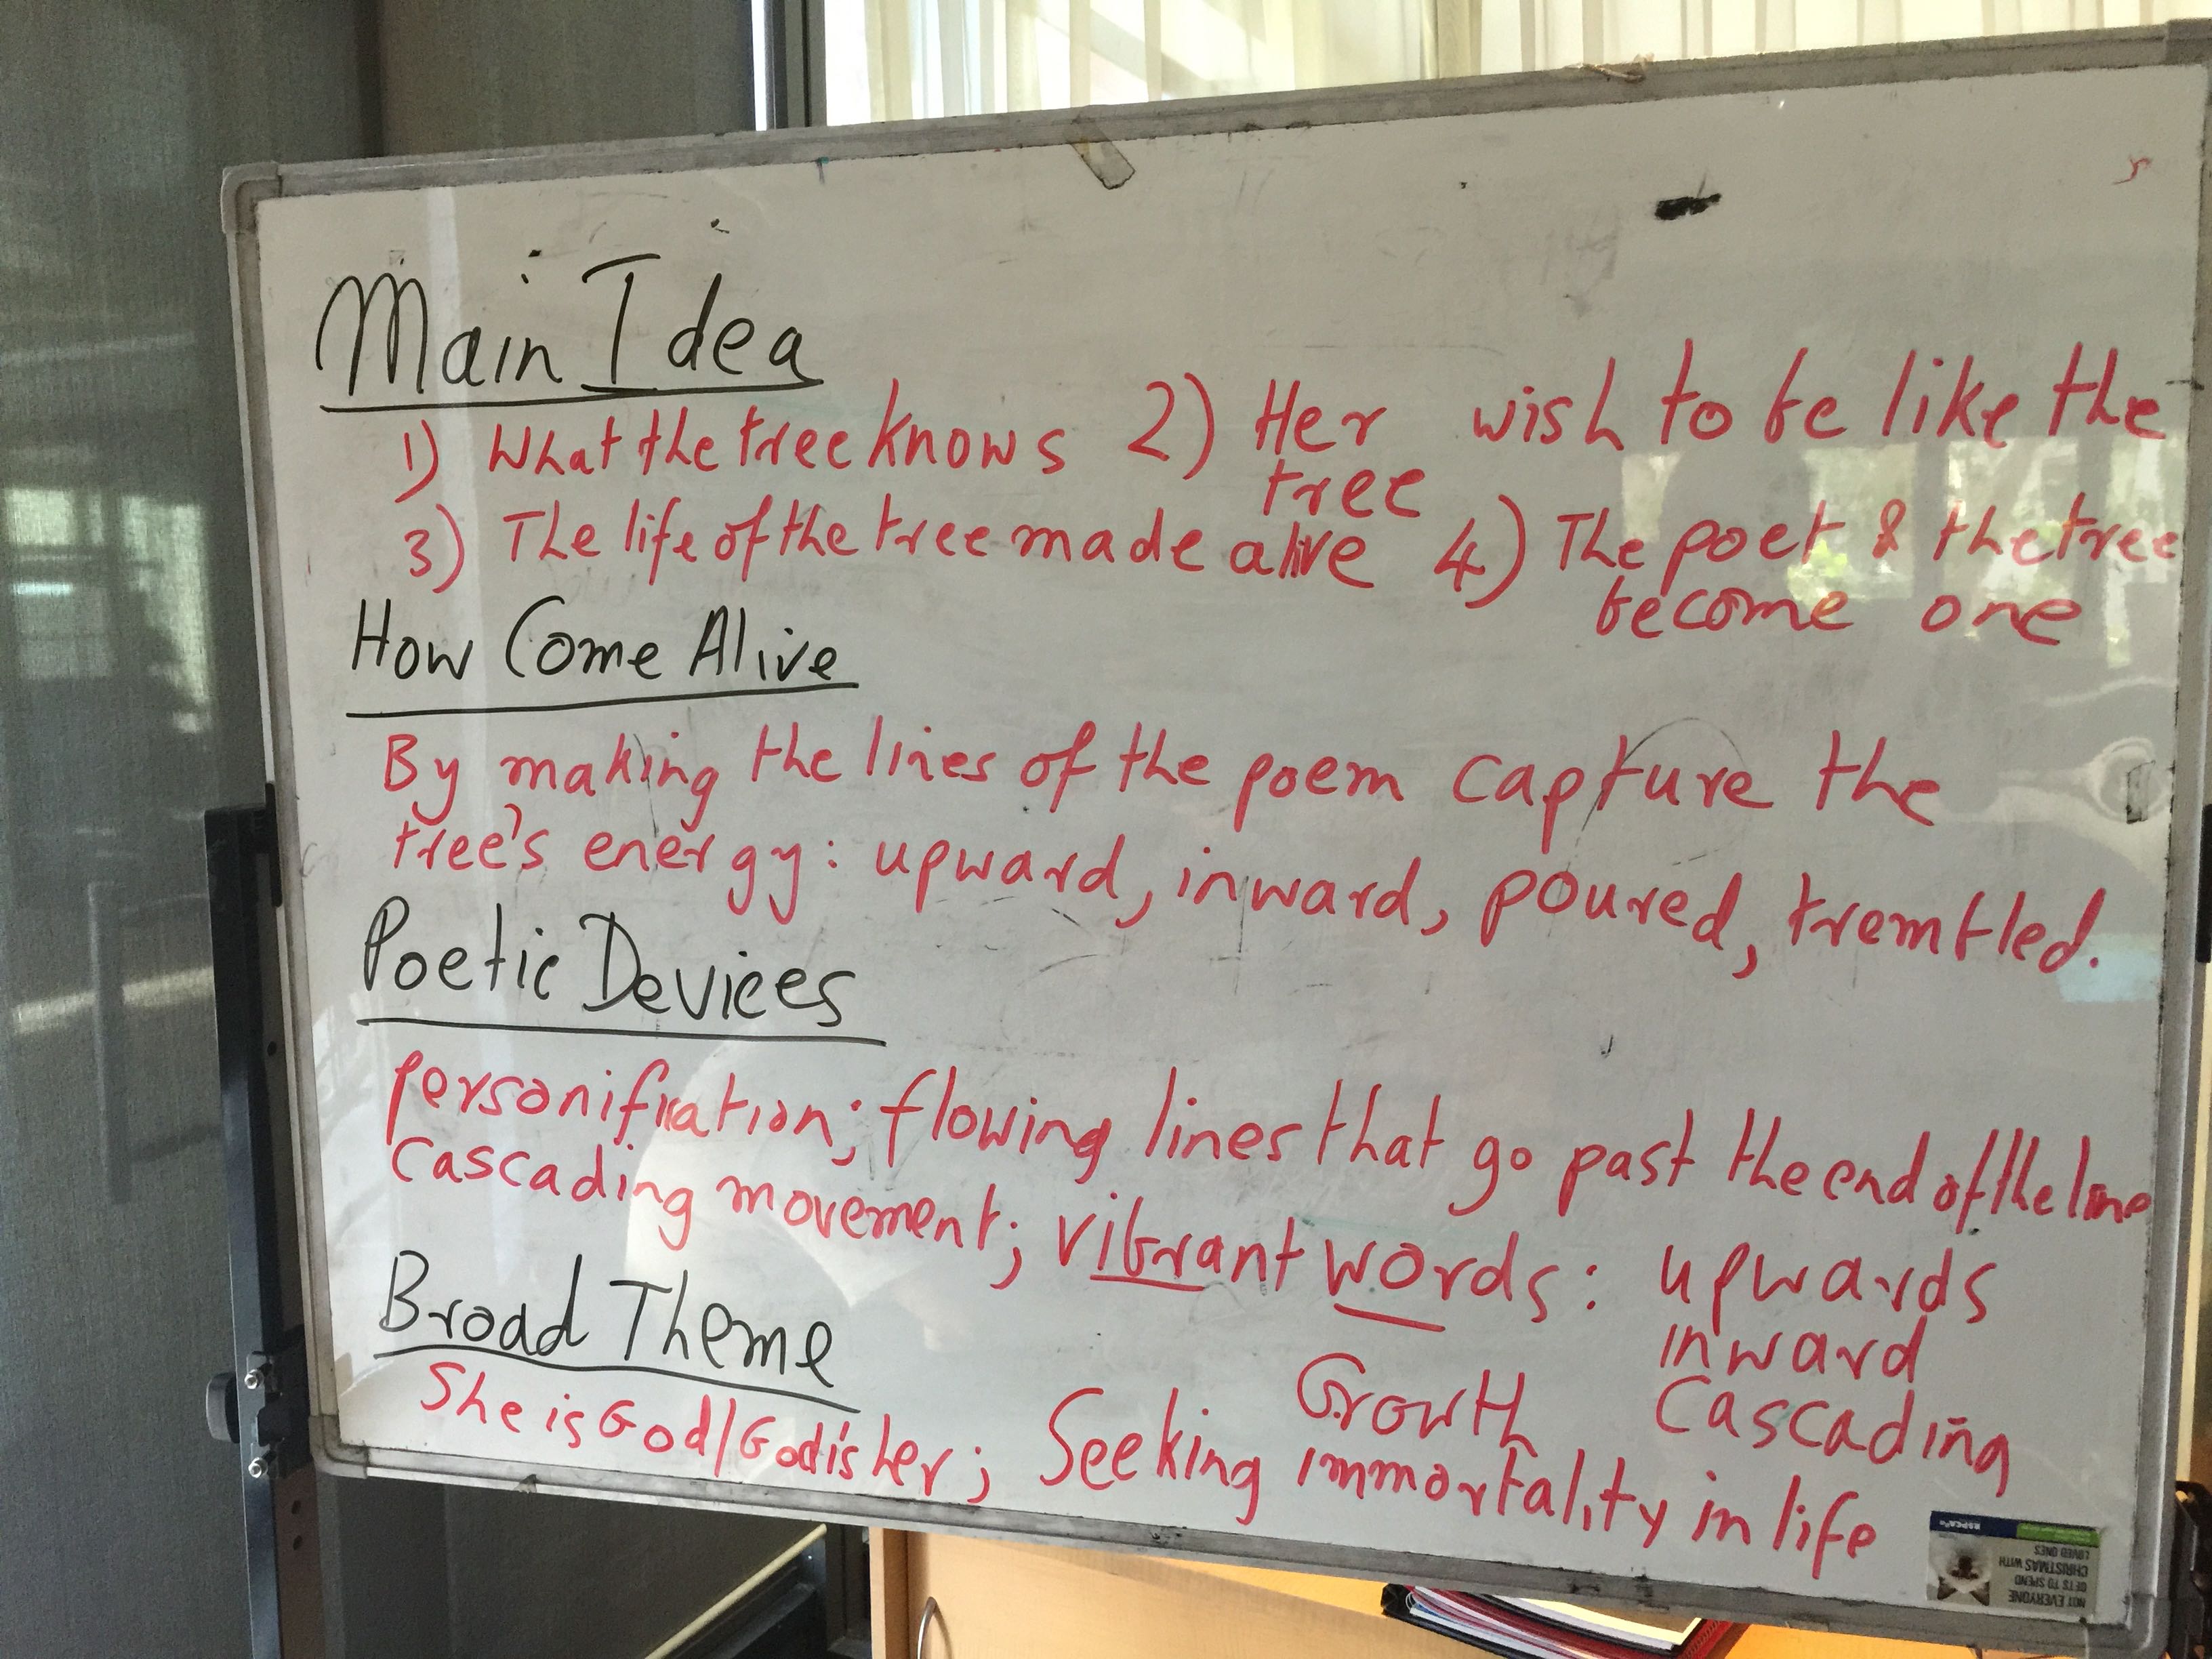 Main Idea
1) What the tree knows 2) Her wish to be like the
tree
3) The life of the tree made alive 4) The poet & the tree
become one
How Come Alive
By making the lines of the poem capture the
tree's energy: upward, inward, poured, trembled.
Poetic Devices
personification; flowing lines that go past the end of the line
cascading movement; vibrant words: upwards
inward
Growth cascading
Broad Theme
She is God/God is her; Seeking immortality in life
RSPCA
NOT EVERYONE
GETS TO SPEND
CHRISTMAS WITH
LOVED ONES